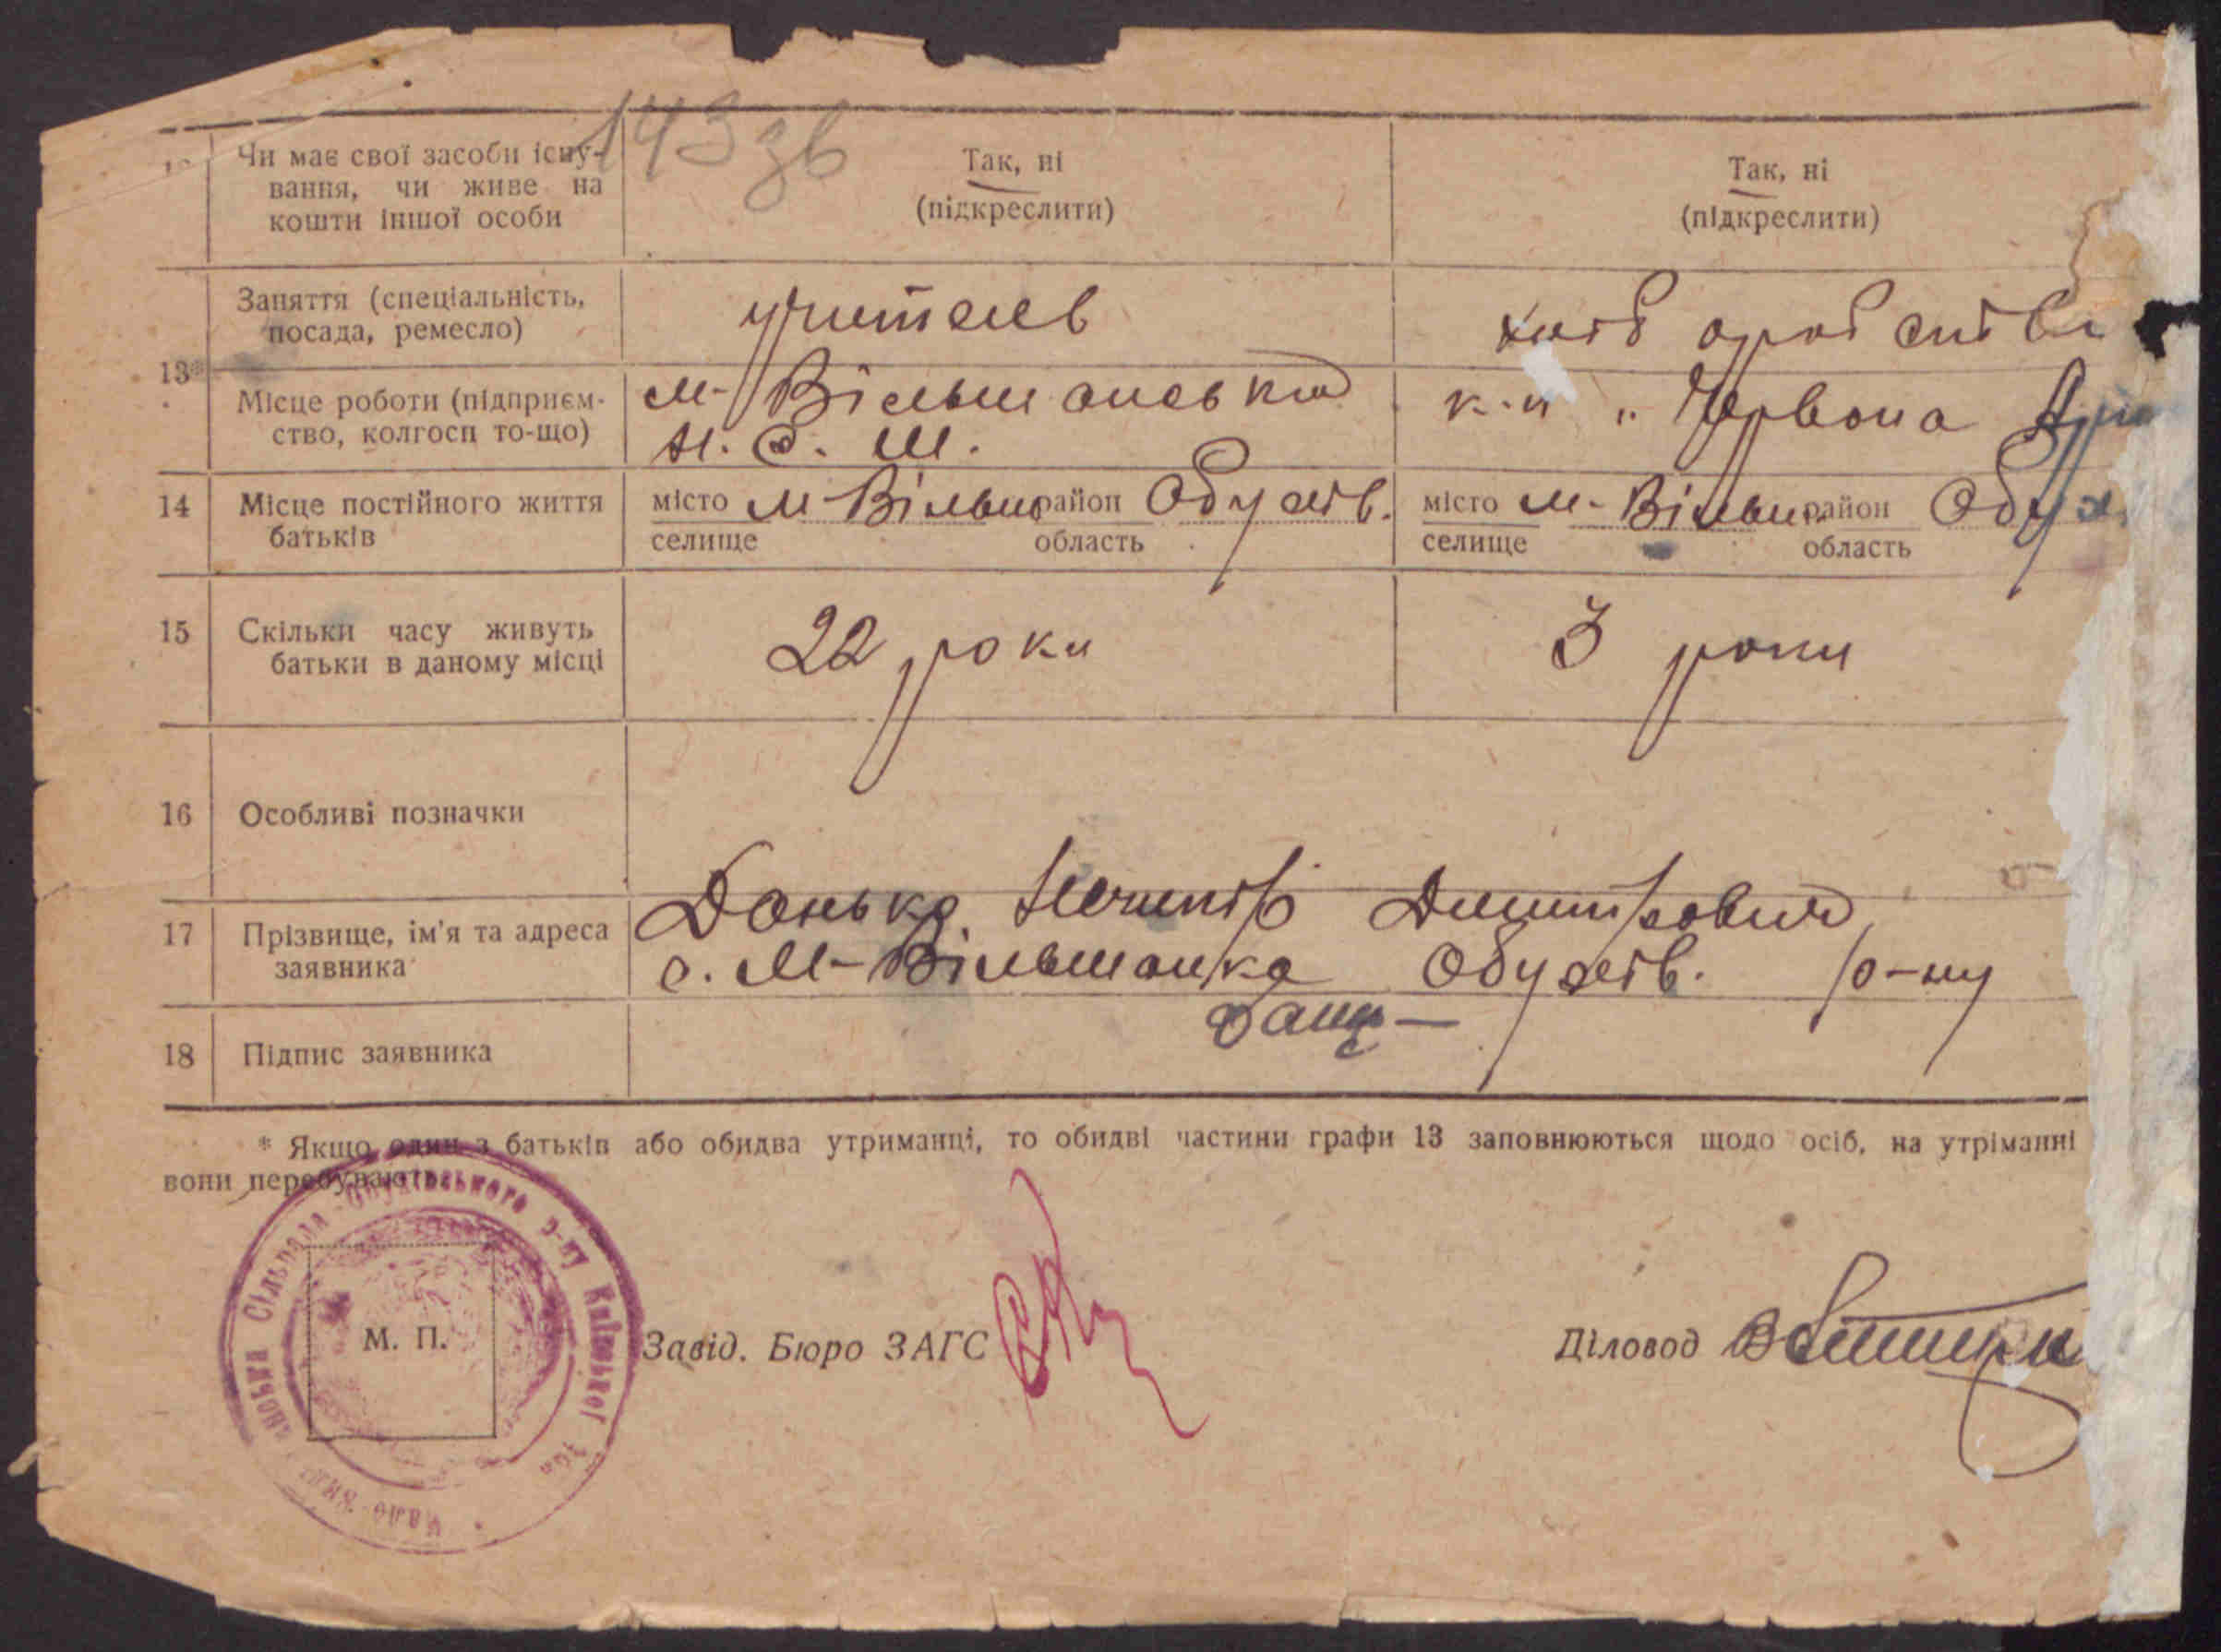 143 зв
Чи має свої засоби існу-
вання, чи живе на
кошти іншої особи
Так, ні
(підкреслити)
Так, ні
(підкреслити)
13*
Заняття (спеціальність,
посада, ремесло)
учитель
хліб
Місце роботи (підприєм-
ство, колгосп то-що)
М-Вільшанська
Н. С. Ш.
к-п "Червона
14
Місце постійного життя
батьків
місто М-Вільш район Обухів.
селище область
місто М-Вільш район Обух
селище область
15
Скільки часу живуть
батьки в даному місці
22 роки
3 роки
16
Особливі позначки
17
Прізвище, ім'я та адреса
заявника
Данько Ничипір Дмитрович
с. М-Вільшанка Обухів. р-ну
18
Підпис заявника
* Якщо один з батьків або обидва утриманці, то обидві частини графи 13 заповнюються щодо осіб, на утріманні
вони перебувають.
Сільрада Обухівського р-ну Київської
М. П.
Завід. Бюро ЗАГС
Діловод